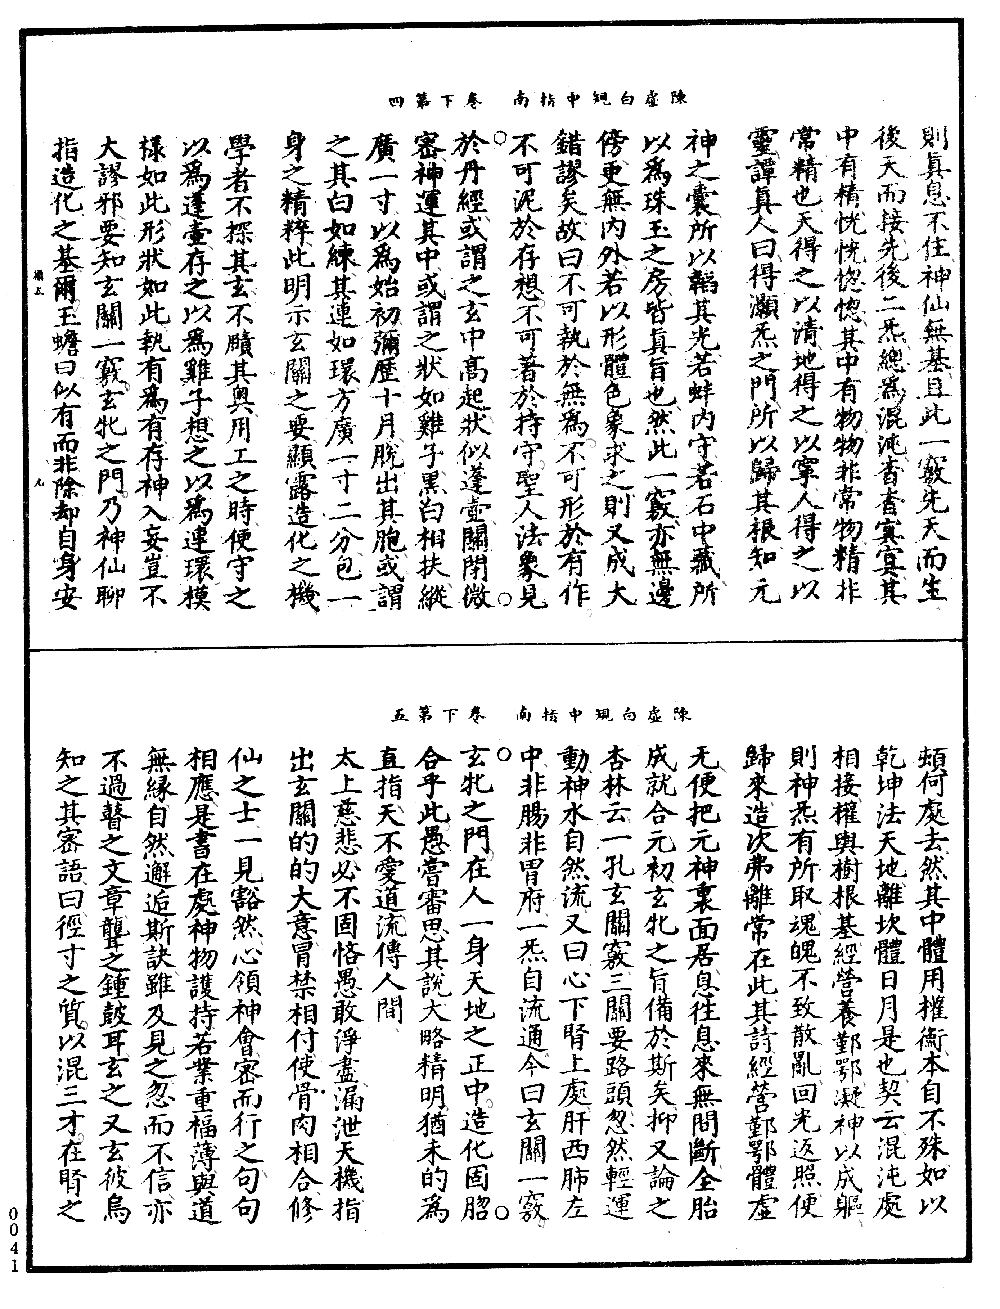 陳虛白規中指南　卷下第四
則真息不住神仙無基且此一竅先天而生
後天而接先後二炁總爲混沌杳杳冥冥其
中有精恍恍惚惚其中有物物非常物精非
常精也天得之以清地得之以寧人得之以
靈譚真人曰得灝炁之門所以歸其根知元
神之囊所以韜其光若蚌内守若石中藏所
以爲珠玉之房皆真旨也然此一竅亦無邊
傍更無内外若以形體色象求之則又成大
錯謬矣故曰不可執於無爲不可形於有作
不可泥於存想不可著於持守聖人法象見
於丹經或謂之玄中高起狀似蓬壺關閉微
密神運其中或謂之狀如雞子黑白相扶縱
廣一寸以爲始初彌歷十月脫出其胞或謂
之其白如練其連如環方廣一寸二分包一
身之精粹此明示玄關之要顯露造化之機
學者不探其玄不賾其奥用工之時便守之
以爲蓬壺存之以爲雞子想之以爲連環模
樣如此形狀如此執有爲有存神入妄豈不
大謬邪要知玄關一竅玄牝之門乃神仙聊
指造化之基爾玉蟾曰似有而非除却自身安
陳虛白規中指南　卷下第五
頓何處去然其中體用權衡本自不殊如以
乾坤法天地離坎體日月是也契云混沌處
相接權輿樹根基經營養鄞鄂凝神以成軀
則神炁有所取魂魄不致散亂回光返照便
歸來造次弗離常在此其詩經營鄞鄂體虛
无便把元神裏面居息往息來無間斷全胎
成就合元初玄牝之旨備於斯矣抑又論之
杏林云一孔玄關竅三關要路頭忽然輕運
動神水自然流又曰心下腎上處肝西肺左
中非腸非胃府一炁自流通今曰玄關一竅
玄牝之門在人一身天地之正中造化固脗
合乎此愚嘗審思其說大略精明猶未的爲
直指天不愛道流傳人間
太上慈悲必不固恡愚敢淨盡漏泄天機指
出玄關的的大意冒禁相付使骨肉相合修
仙之士一見豁然心領神會密而行之句句
相應是書在處神物護持若業重福薄與道
無緣自然邂逅斯訣雖及見之忽而不信亦
不過瞽之文章聾之鍾鼓耳玄之又玄彼烏
知之其密語曰徑寸之質以混三才在腎之
0041